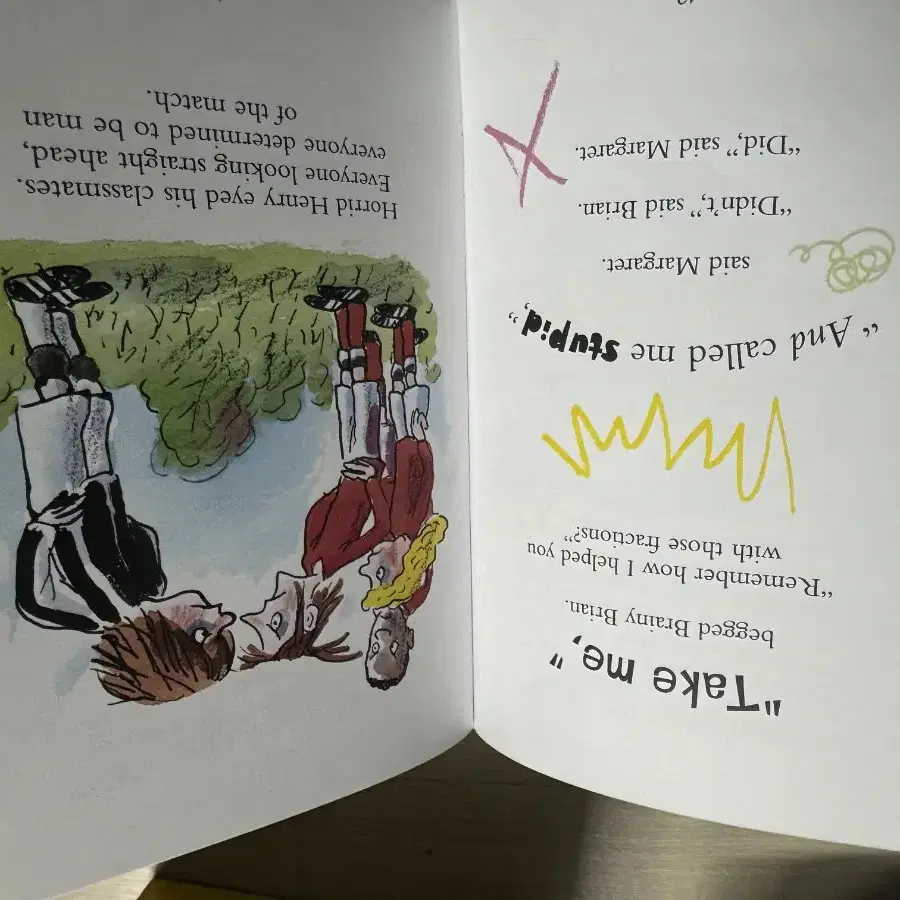 "Take me,"
begged Brainy Brian.
“Remember how I helped you
with those fractions?”
“And called me stupid,”
said Margaret.
“Didn’t,” said Brian.
“Did,” said Margaret.
Horrid Henry eyed his classmates.
Everyone looking straight ahead,
everyone determined to be man
of the match.